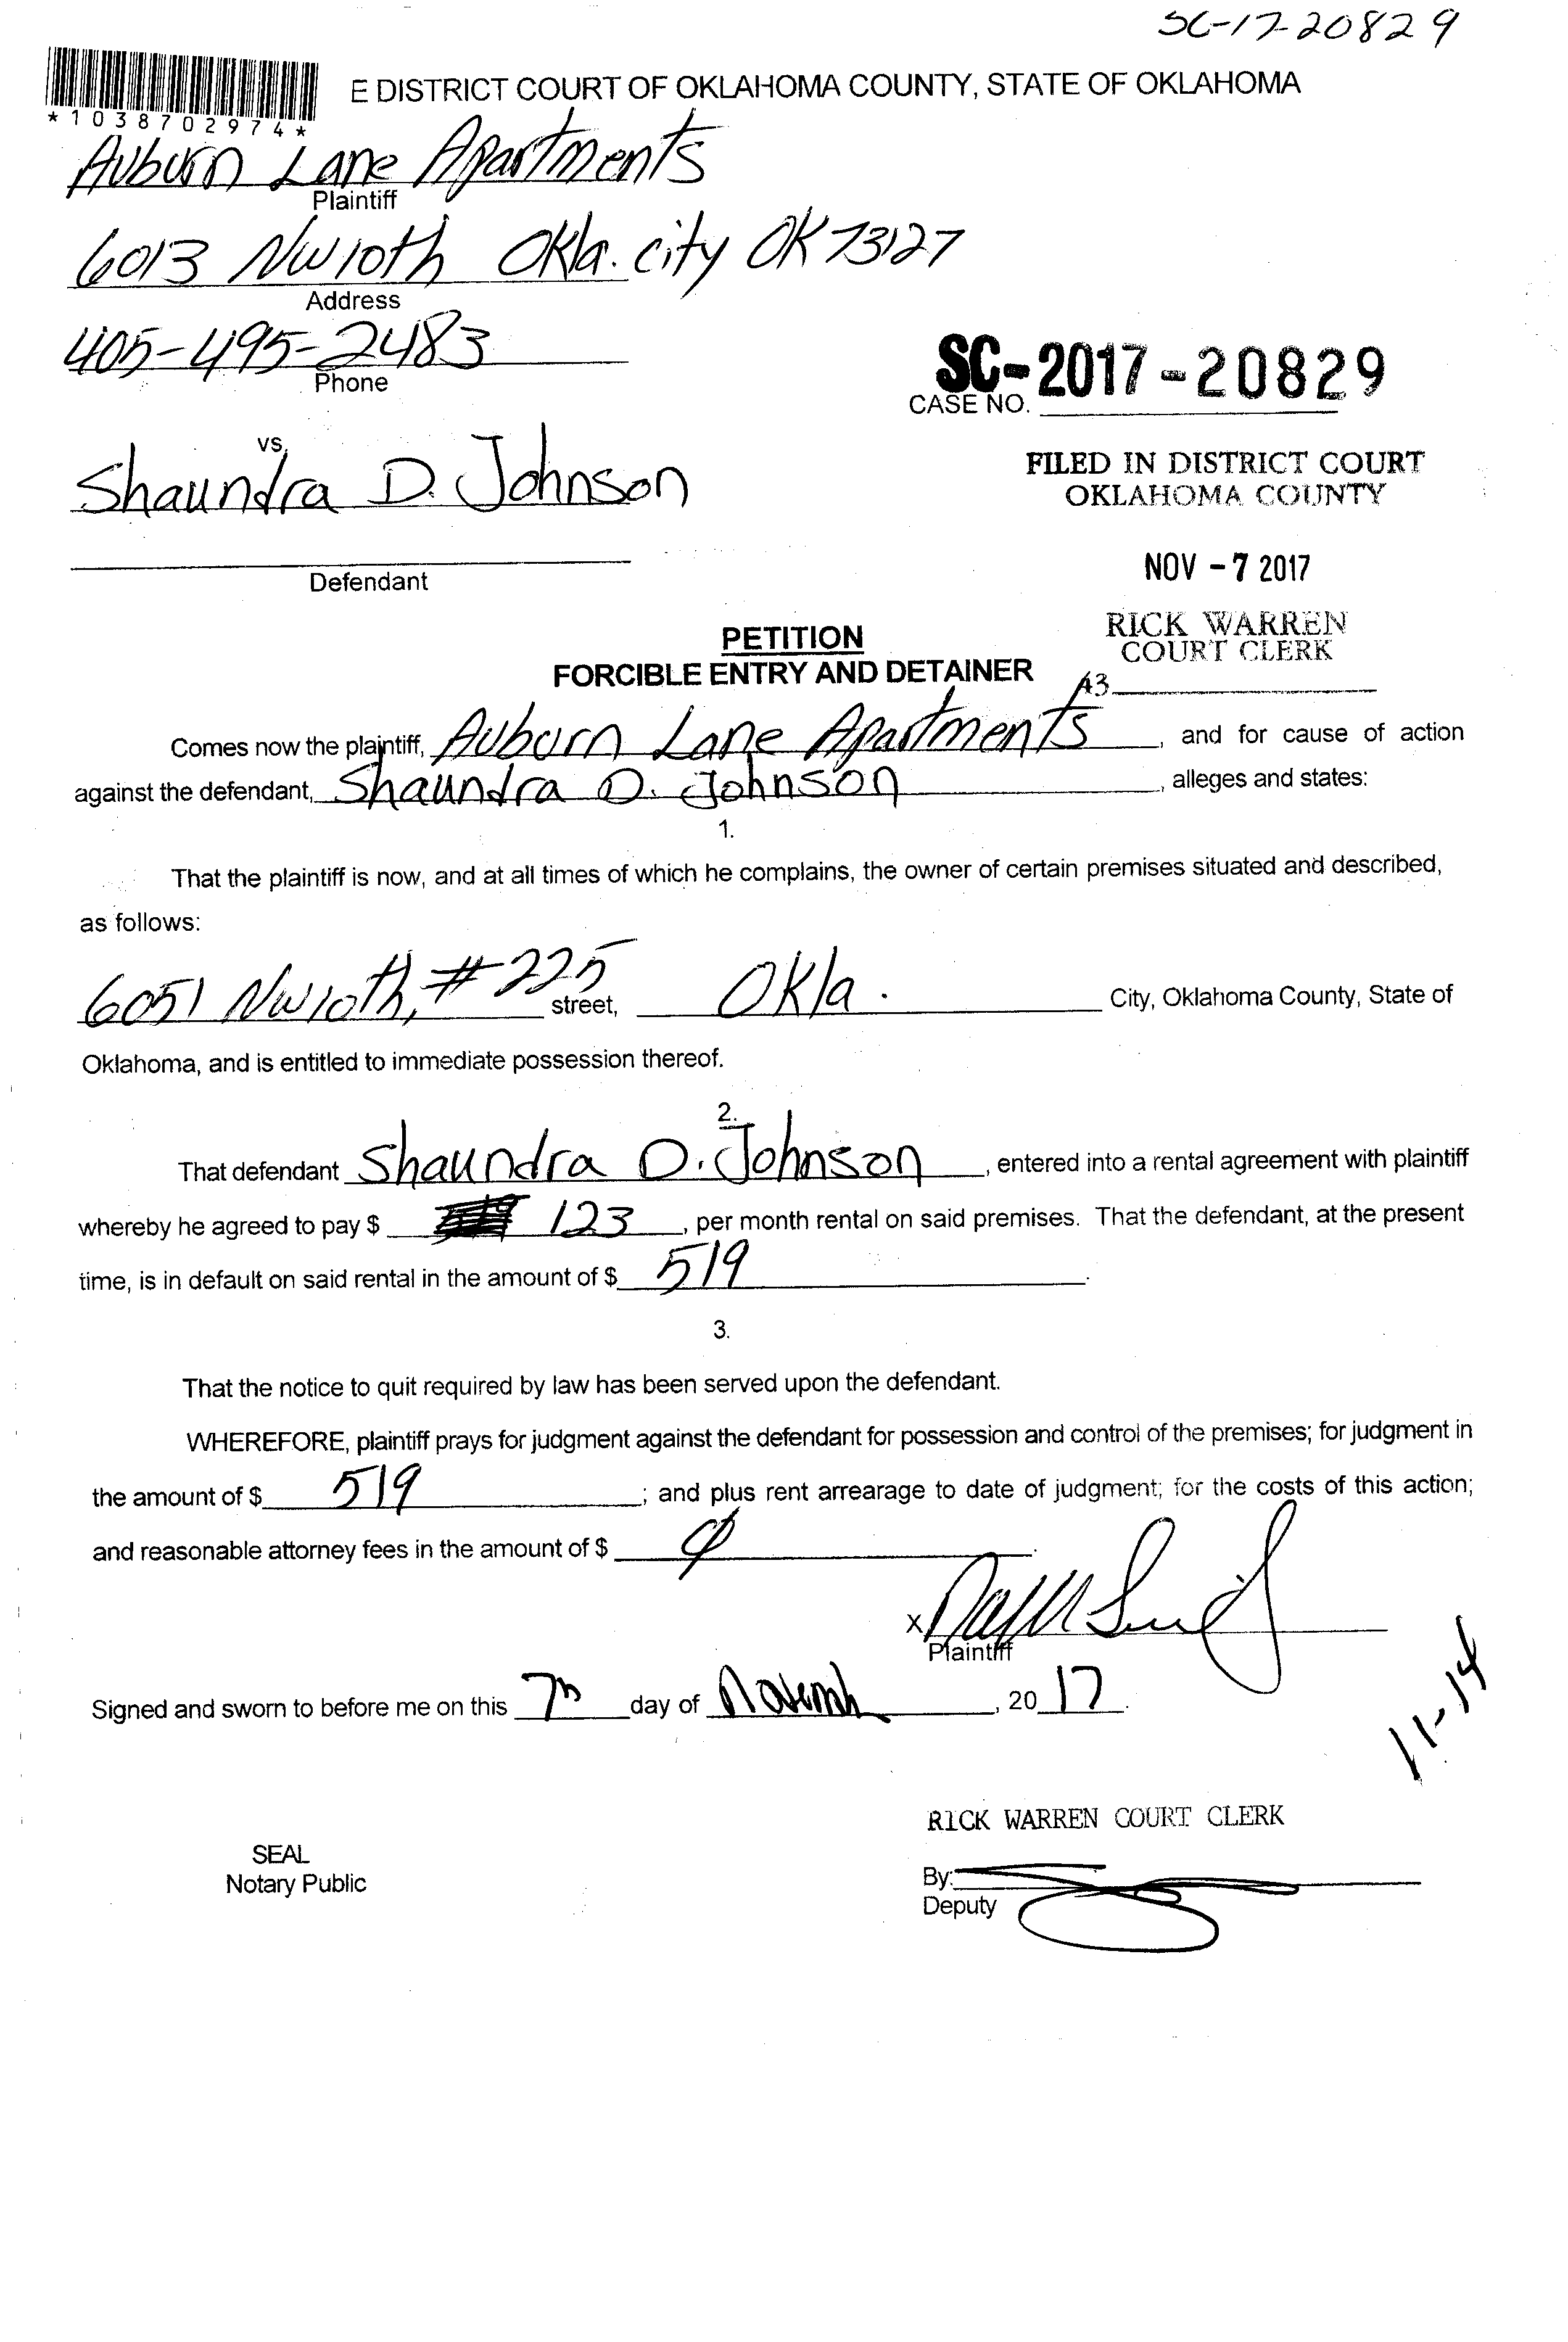 SC-17-20829
E DISTRICT COURT OF OKLAHOMA COUNTY, STATE OF OKLAHOMA
*1038702974*
Auburn Lane Apartments
Plaintiff
6013 NW 10th Okla. city OK 73127
Address
405-495-2483
Phone
SC-2017-20829
CASE NO.
vs.
Shaundra D. Johnson
FILED IN DISTRICT COURT
OKLAHOMA COUNTY
Defendant
NOV -7 2017
RICK WARREN
COURT CLERK
PETITION
FORCIBLE ENTRY AND DETAINER
Comes now the plaintiff, Auburn Lane Apartments, and for cause of action
against the defendant, Shaundra D. Johnson, alleges and states:
1.
That the plaintiff is now, and at all times of which he complains, the owner of certain premises situated and described,
as follows:
6051 NW 10th, #225 street, Okla. City, Oklahoma County, State of
Oklahoma, and is entitled to immediate possession thereof.
2.
That defendant Shaundra D. Johnson, entered into a rental agreement with plaintiff
whereby he agreed to pay $ 123, per month rental on said premises. That the defendant, at the present
time, is in default on said rental in the amount of $ 519.
3.
That the notice to quit required by law has been served upon the defendant.
WHEREFORE, plaintiff prays for judgment against the defendant for possession and control of the premises; for judgment in
the amount of $ 519; and plus rent arrearage to date of judgment; for the costs of this action;
and reasonable attorney fees in the amount of $ Ø.
x
Plaintiff
Signed and sworn to before me on this 7th day of Novemb, 20 17.
11-14
RICK WARREN COURT CLERK
SEAL
Notary Public
By:
Deputy